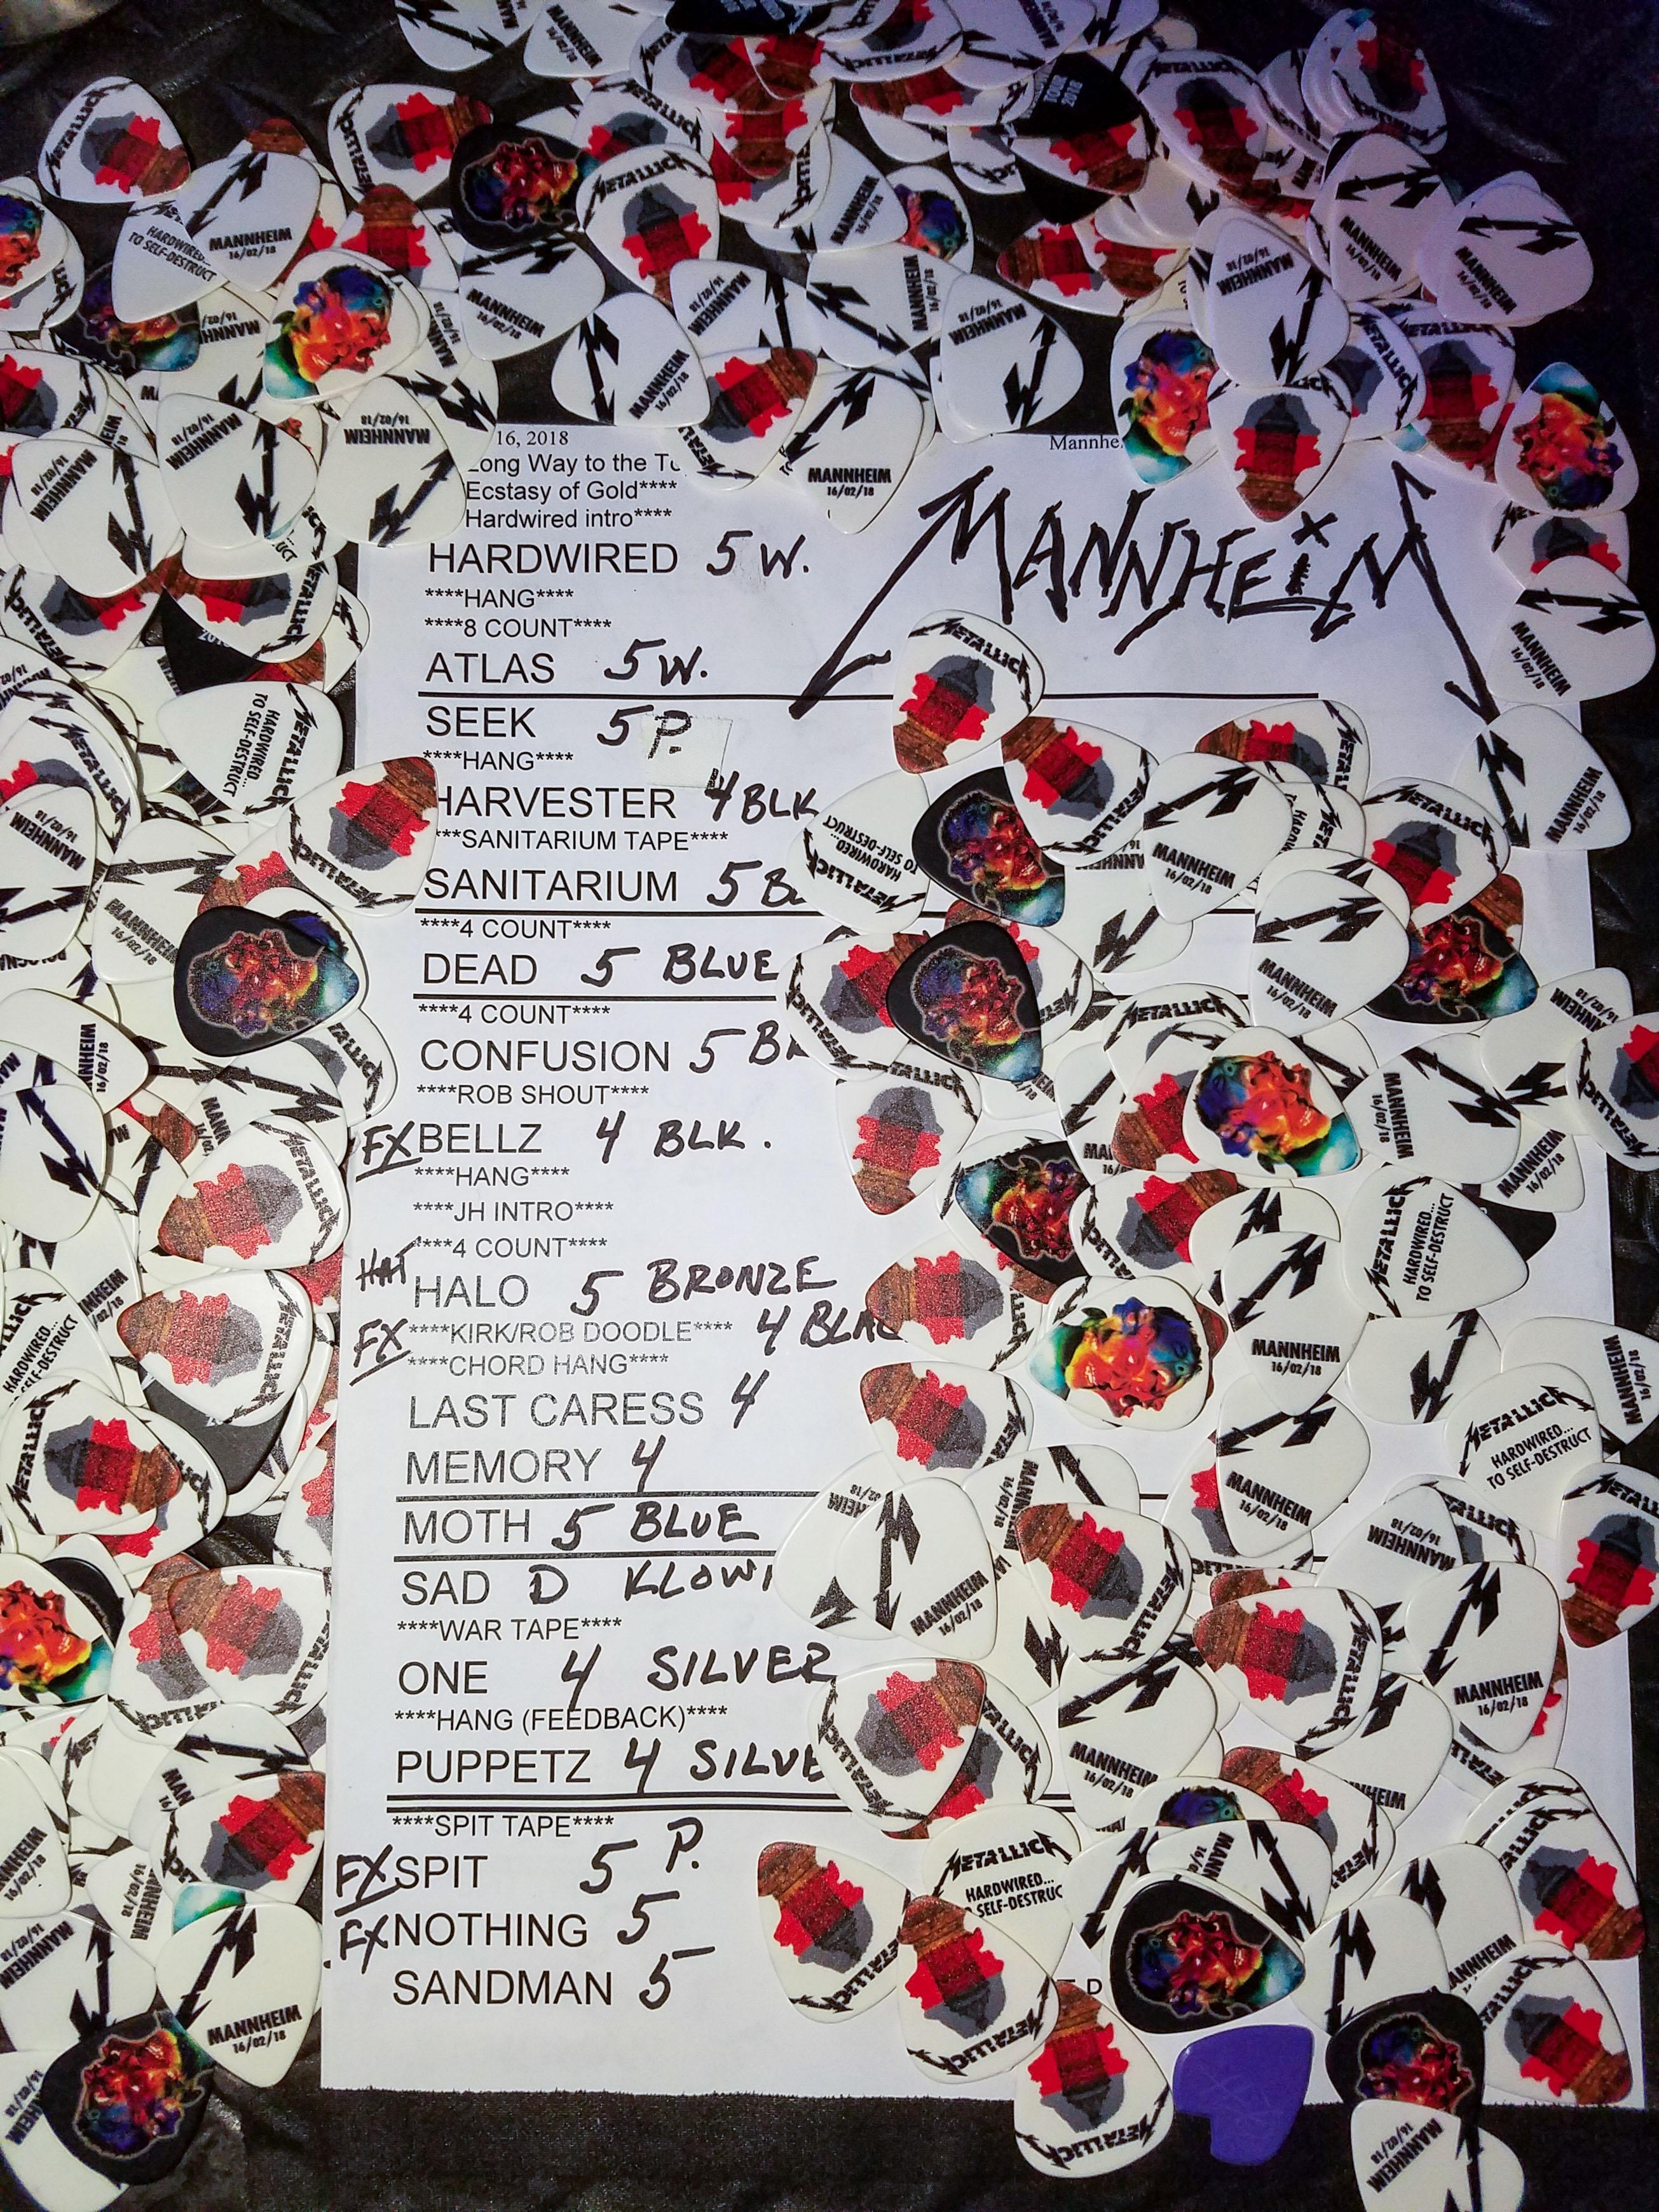 16, 2018
Long Way to the
Ecstasy of Gold****
Hardwired intro****
MANNHEiM
HARDWIRED 5 W.
****HANG****
****8 COUNT****
ATLAS 5 W.
SEEK 5 P.
****HANG****
HARVESTER 4 BLK
***SANITARIUM TAPE****
SANITARIUM 5
****4 COUNT****
DEAD 5 BLUE
****4 COUNT****
CONFUSION 5
****ROB SHOUT****
FX BELLZ 4 BLK.
****HANG****
****JH INTRO****
****4 COUNT****
HAT HALO 5 BRONZE
FX ****KIRK/ROB DOODLE**** 4
****CHORD HANG****
LAST CARESS 4
MEMORY 4
MOTH 5 BLUE
SAD D
****WAR TAPE****
ONE 4 SILVER
****HANG (FEEDBACK)****
PUPPETZ 4 SILVE
****SPIT TAPE****
FX SPIT 5 P.
FX NOTHING 5
SANDMAN 5
METALLICA
HARDWIRED...
TO SELF-DESTRUCT
MANNHEIM
16/02/18